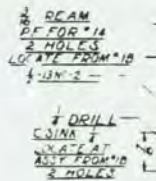 REAM
P.F. FOR #14
2 HOLES
LOCATE FROM #1B
-13NC-2
1/4 DRILL
CSINK 1/4
LOCATE AT
ASSY FROM #1B
2 HOLES